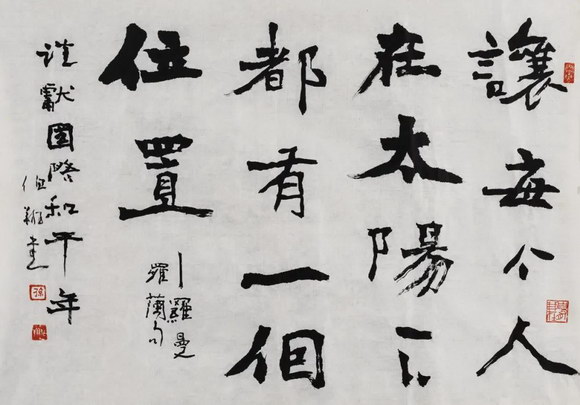 讓每个人
在太陽下
都有一個
位置
—羅曼
羅蘭句
謹獻國際和平年